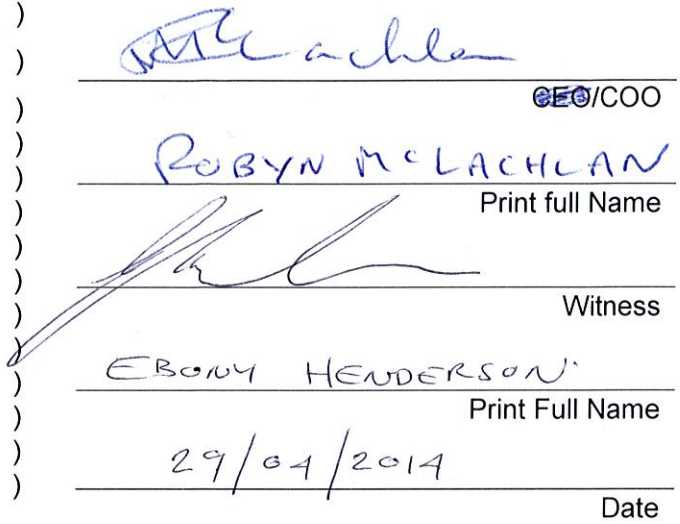 )
)
CEO/COO
)
)
ROBYN MCLACHLAN
)
Print full Name
)
)
)
Witness
)
)
EBONY HENDERSON
)
Print Full Name
)
)
29/04/2014
)
Date